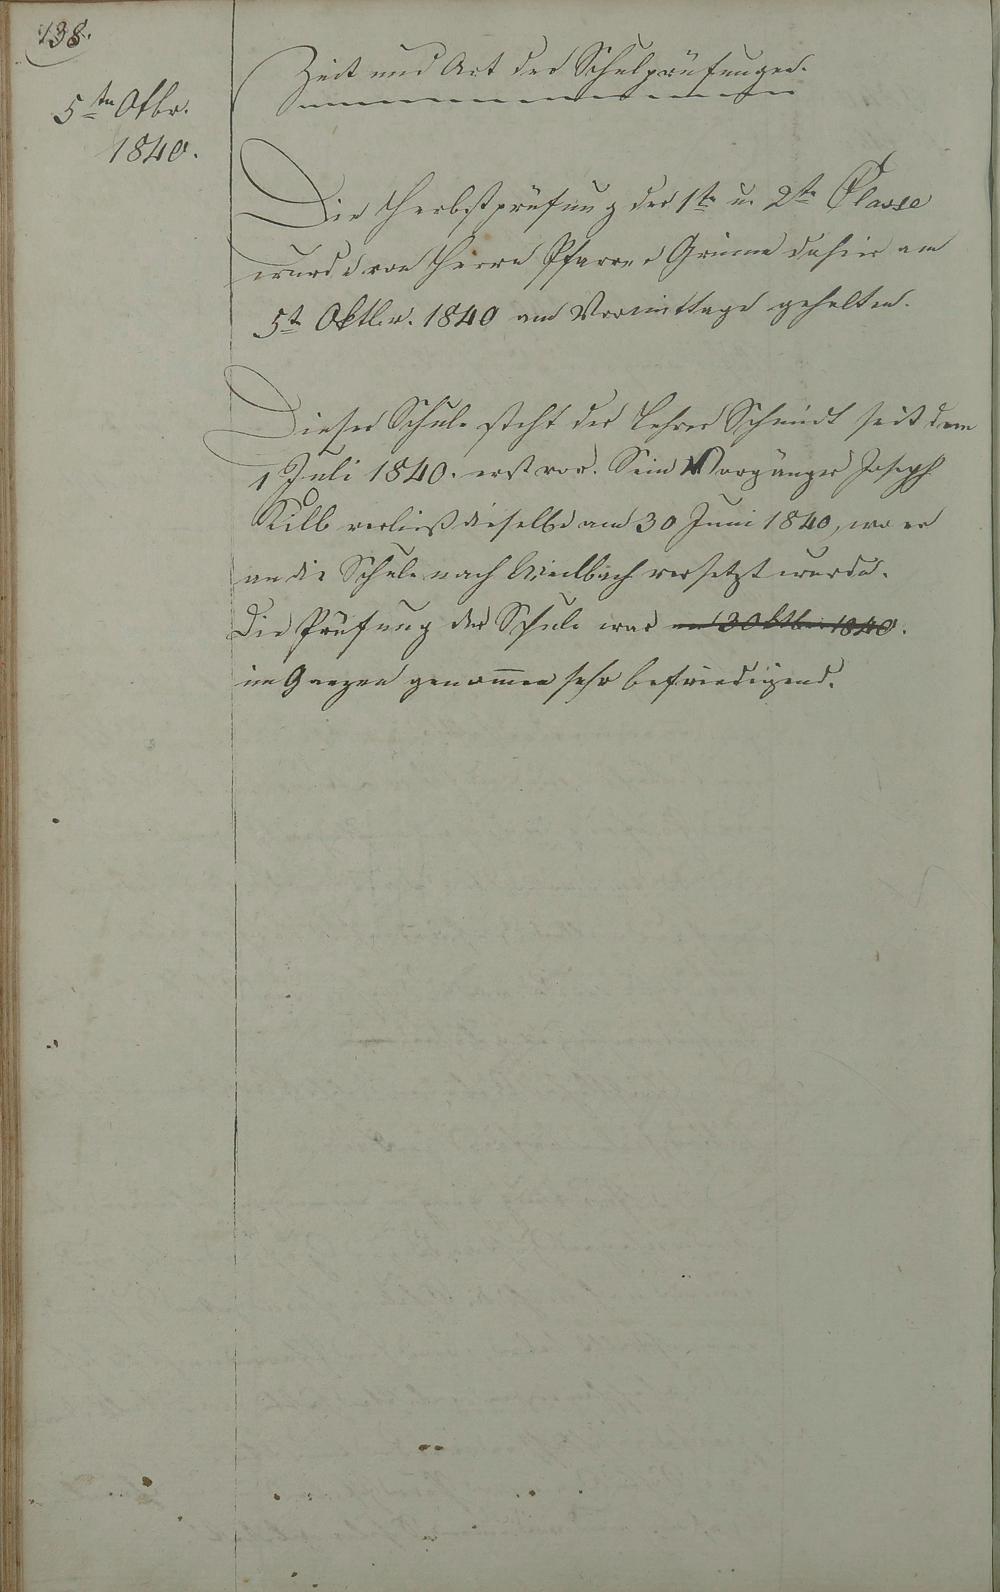 138.
5ten Otbr.
1840.
Zeit und Art der Schulprüfungen.
Die Herbstprüfung der 1te u. 2te Classe
wurde von Herrn Pfarrer Grimm dahier am
5t Oktbr. 1840 am Vormittage gehalten.
Dieser Schule steht der Lehrer Schmidt seit dem
1 Juli 1840. erst vor. Sein Vorgänger Joseph
Kilb verließ dieselbe am 30 Juni 1840, wo er
an die Schule nach versetzt wurde.
Die Prüfung der Schule war am 3 Oktbr 1840.
im Ganzen genommen sehr befriedigend.